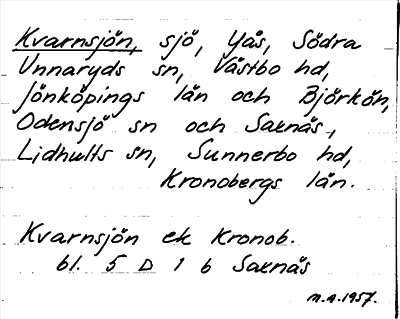 Kvarnsjön, sjö, Yås, Södra
Unnaryds sn, Västbo hd,
Jönköpings län och Björkön,
Odensjö sn och Saxnäs,
Lidhults sn, Sunnerbo hd,
Kronobergs län.
Kvarnsjön ek Kronob.
bl. 5 D 1 b Saxnäs
M.A.1957.